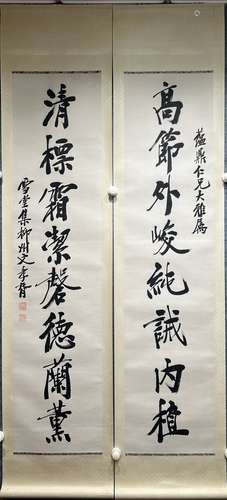 蘊鼎仁兄大雅屬
高節外峻純誠內植
清標霜潔馨德蘭薰
雪堂集柳州文